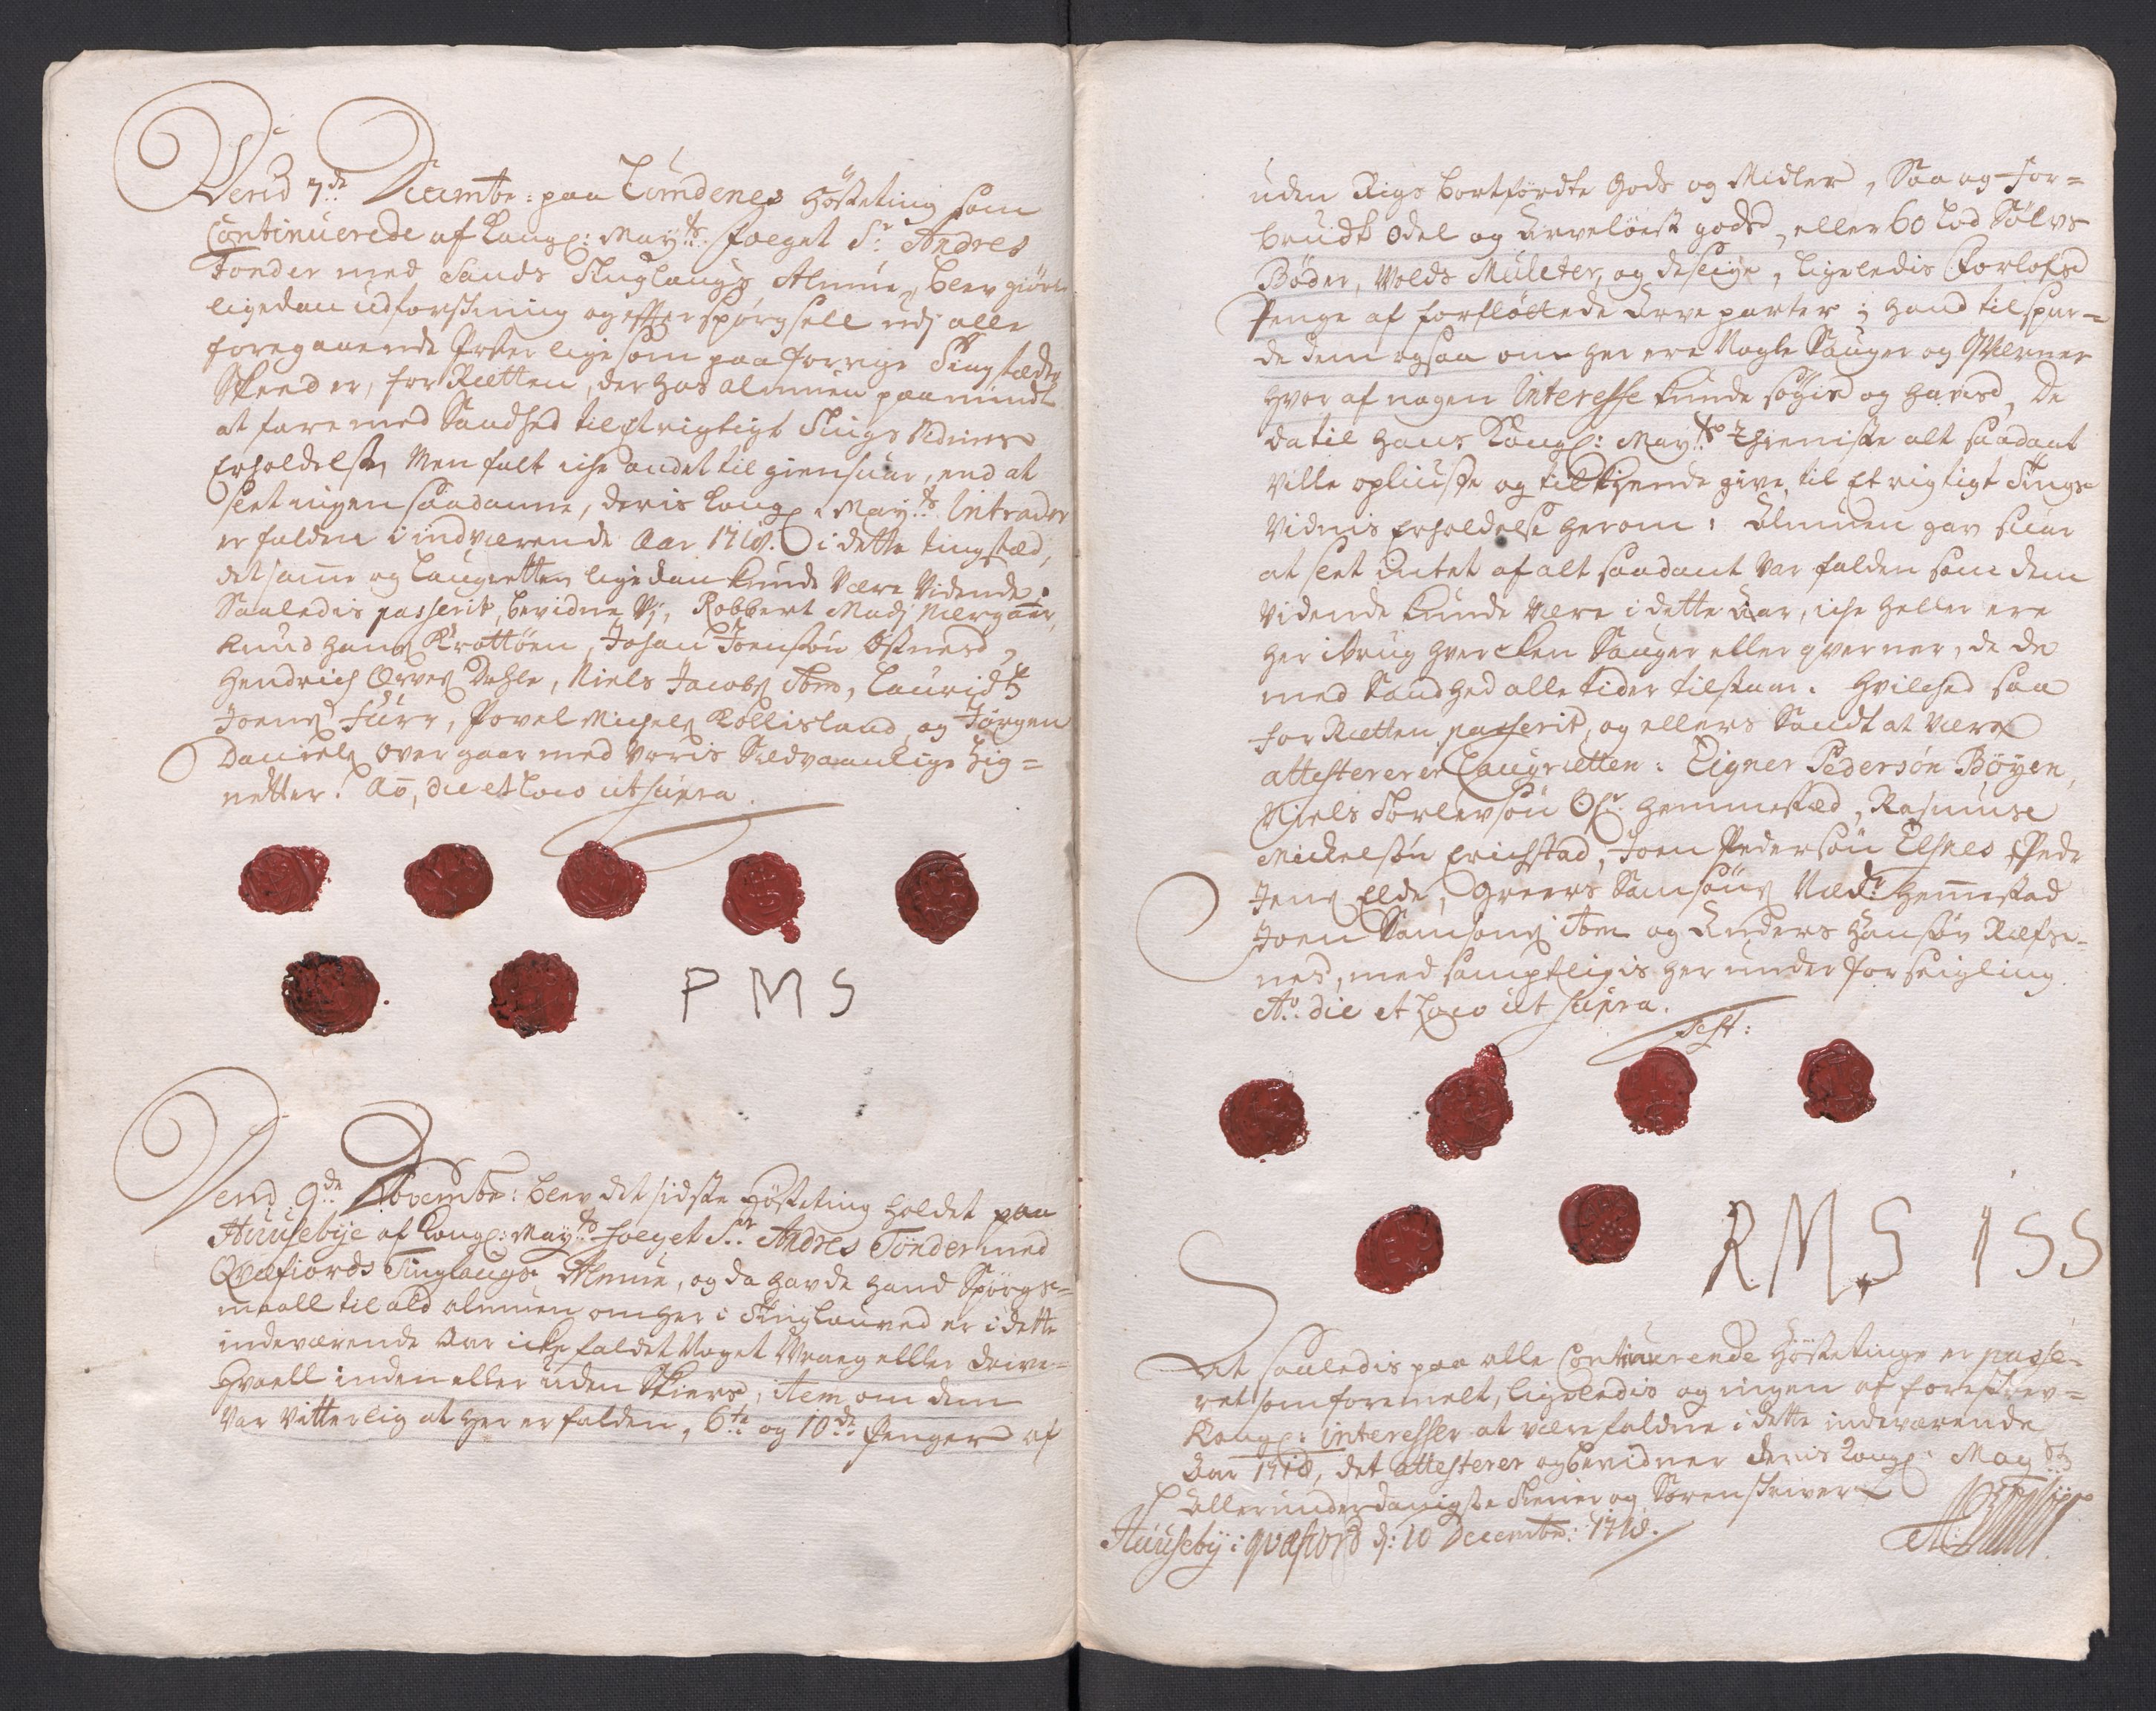 Dend 7de Decembr: paa Lomdenes Høsteting som
Continuerede af Kongl: Mayts: foeget Sr Andres
Tonder med Sands Tinglaugs Almue, blev giort
ligedan udforskning og efterspørgsell udj alle
foregaaende Poster lige som paa forrige Tingstæder
Skeed er, for Rætten, der hos almuen paamindt
at fare med Sandhed til Et rigtigt Tings Vidnes
Erholdelse, Men falt iche andet til giensuar, end at
slet ingen saadanne, deris Kongl: Mayts: Intrader
er falden i indværende Aar 1710. i dette tingsted,
det samme og Laugretten ligedan kunde Være Vidende.
Saaledis passerit, bevidne Vj, Robbert Madz Nærgaar,
Knud Hans Krottøen, Johan Joensøn Østnes,
Hendrich Dehle, Niels Jacobs ibm, Laurids
Joens Furr, Povel Michels Kollisland, og Jørgen
Daniels overgaar med Voris Sædvaanlige Zig=
netter. Ao, die et loco ut supra.
P M S
Dend 9de Decembr: blev det sidste Høsteting holdet paa
Huusebye af Kongl: Mayts foeget Sr Andres Tønder med
Qvæfiords Tinglaugs Almue, og da havde hand Spørgs=
maall til ald almuen om her i Tinglauved er i dette
indeværende Aar icke faldet Noget Vraag eller drive=
Hvaell inden eller uden Skiers, item om dem
var Vitterlig at her er falden, 6te og 10de Penger af
uden Rigs bortførdte Gods og Midler, Saa og for=
brudt Odel og Arveløest gods, eller 60 Lod Sølvs
Bøder, Volds Mulcter, og deslige, ligeledis Forlofs
Penge af forfløttede Arve parter; hand tilspur=
de dem ogsaa om her ere Nogle Sauger og Qværner
hvor af nogen Interesse kunde søgis og havis, De
da til hans Kongl: Mayts thieniste alt saadant
ville opliuse og tilkiende give, til Et rigtigt Tings
Vidnis Erholdelse herom: Almuen gav suar
at slet intet af alt saadant var falden som dem
vidende kunde være i dette Aar, iche heller ere
her i brug hvercken Sauger eller qverner, de de
med Sandhed alle tider tilstaar. Hvilched saa
for Rætten passerit, og ellers Sandt at være
attesterer Laugrætten: Eigner Pedersøn Bøyen,
Niels Torlevsøn Øfr Hemmestæd, Rasmus
Mickelsøn Erichstad, Joen Pedersøn Elsnes, Pedr
Jens Elde, Greers Samsøns Nædr Hemestad
Joen Samsøns ibm og Anders Hansøn Refs=
nes, med samptligis her under forseigling
Ao. die et Loco ut supra.
Test:
R M S I S S
At saaledis paa alle Continuerende Høstetinge er passe=
ret som formelt, ligeledis og ingen af foreskrev=
Kongl: Interesser at være faldne i dette indeværende
Aar 1710, det attesterer og bevidner deris Kongl: Mayts
Allerunderdanigste Tiener og Sorenskriver
Huuseby i qvæfiord d: 10 Decembr: 1710.